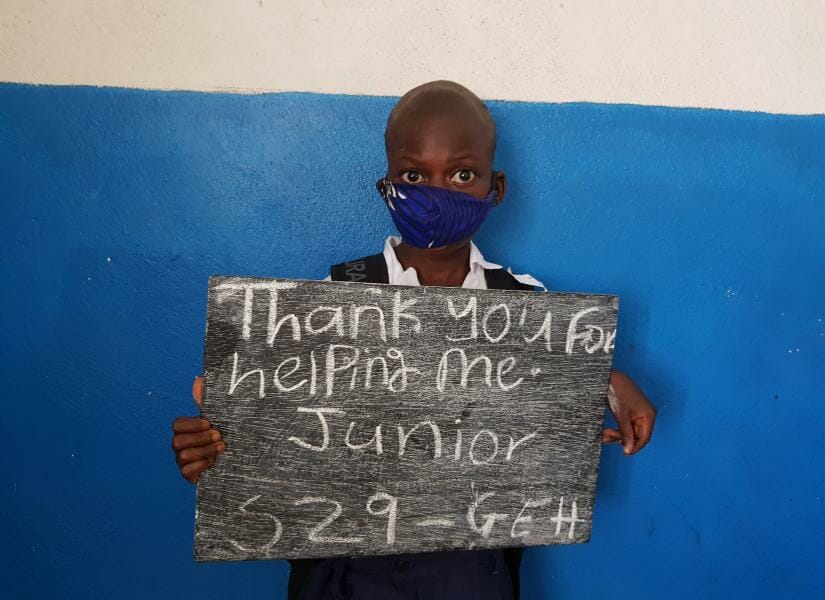 Thank you For
helping me.
Junior
S29-GEH